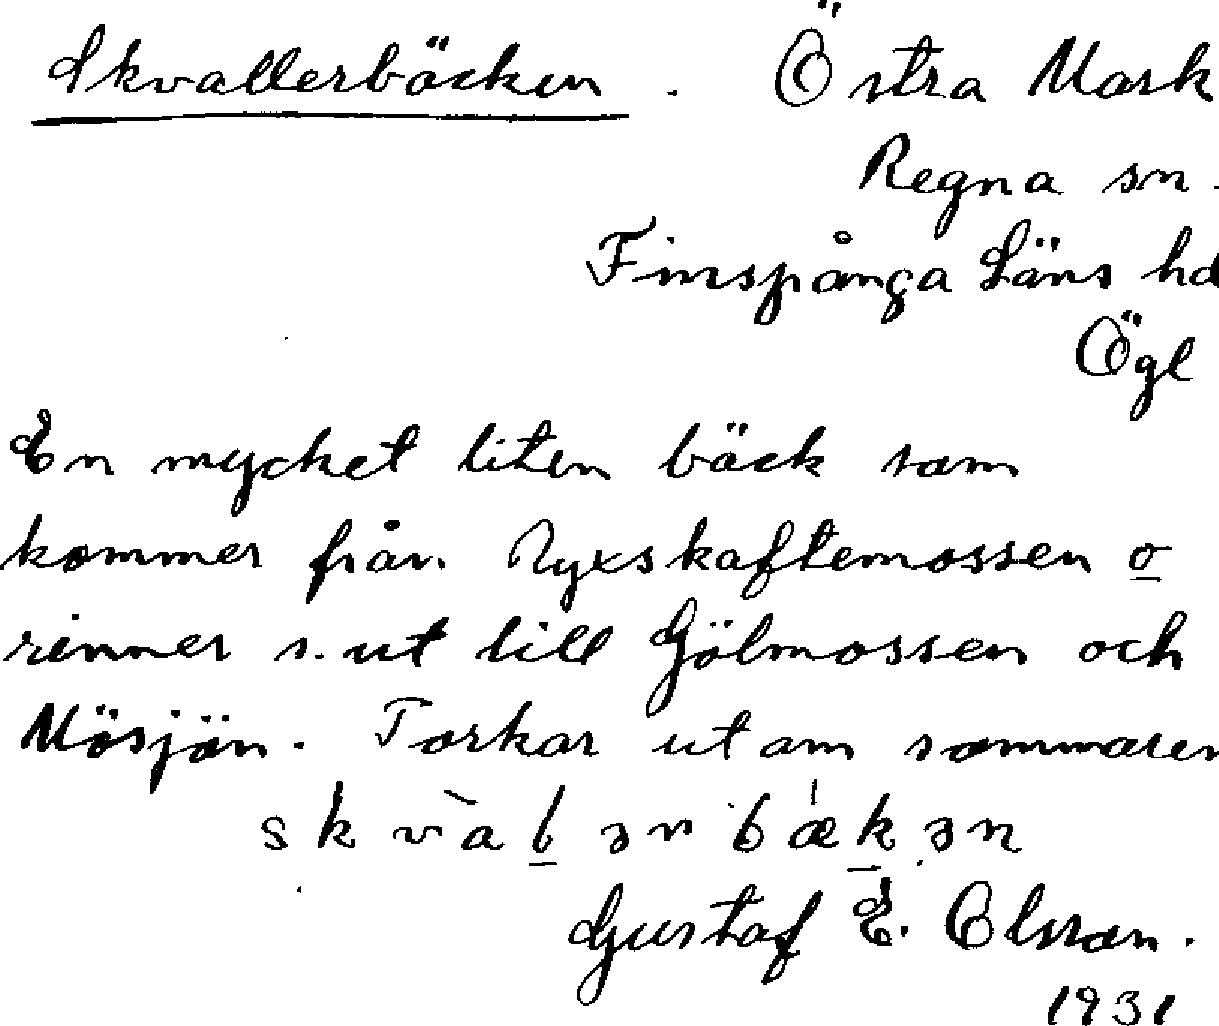 Skvallerbäcken. Östra Mark
Regna sn.
Finspånga Läns hd
Ögl
En mycket liten bäck som
kommer från Yxskaftemossen o
rinner s. ut till Gölmossen och
Mösjön. Torkar ut om sommaren
Gustaf E. Olsson.
1931